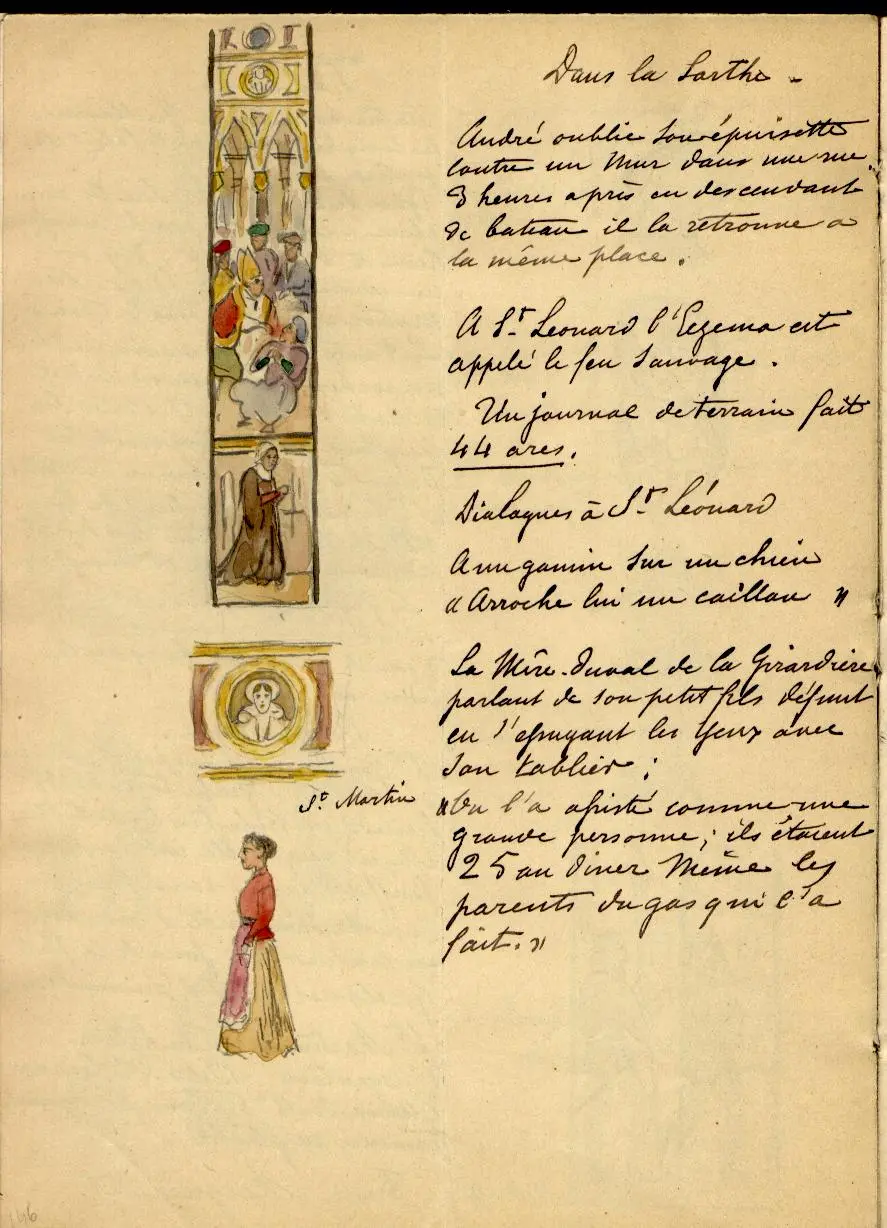 Dans la Sarthe -
André oublie son épuisette
contre un Mur dans une rue,
3 heures après en descendant
de bateau il la retrouve à
la même place.
A St Léonard l'Eczema est
appelé le feu sauvage.
Un journal de terrain fait
44 ares.
Dialogues à St Léonard
A un gamin sur un chien
« Arroche lui un caillou »
La Mère Duval de la Girardière
parlant de son petit fils défunt
en s'essuyant les yeux avec
son tablier ;
« On l'a assisté comme une
grande personne ; ils étaient
25 au diner Même les
parents du gas qui l'a
fait. »
St Martin
146